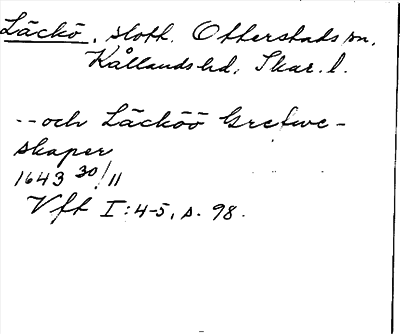 Läckö, slott. Otterstads sn,
Kållands hd, Skar. l.
-- och Läcköö Grefwe-
skaper
1643 30/11
Vft I:4-5, s. 98.